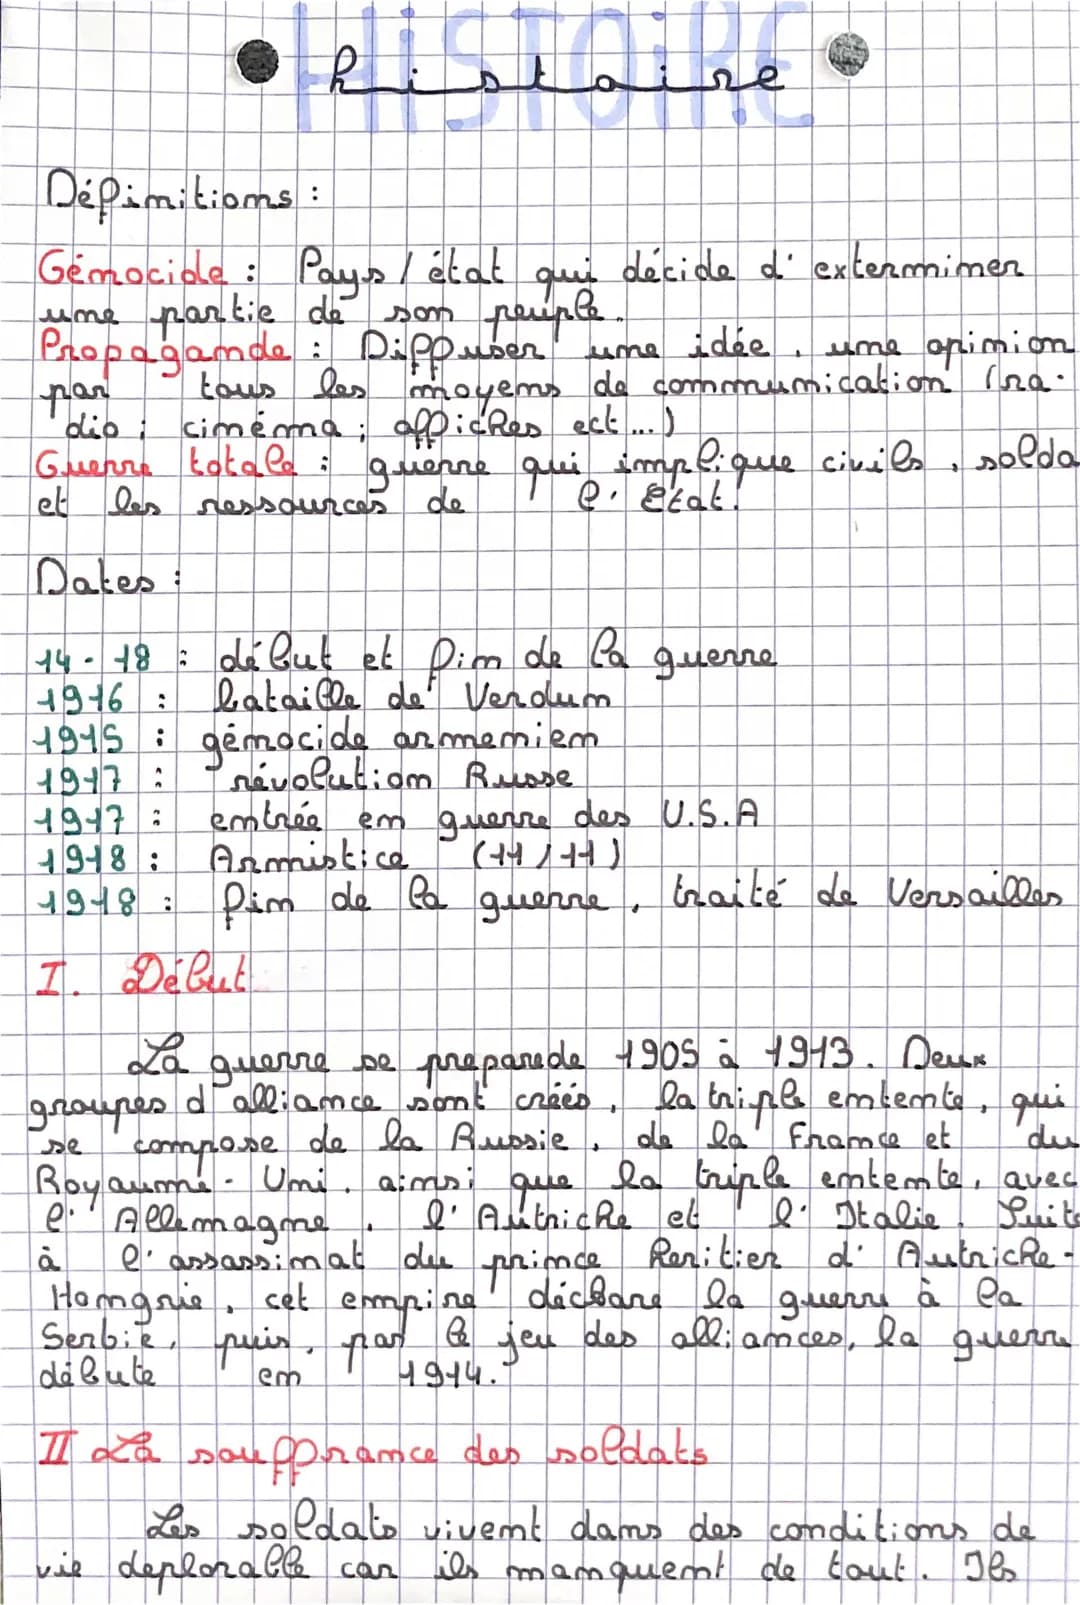 HiSTOiRE
histoire
Définitions :
Génocide : Pays / état qui décide d' exterminer
une partie de son peuple.
Propagande : Diffuser une idée, une opinion
par tous les moyens de communication (ra-
dio ; cinéma ; affiches ect...)
Guerre totale : guerre qui implique civils, solda
et les ressources de l' Etat.
Dates :
14 - 18 : début et fin de la guerre
1916 : bataille de Verdun
1915 : génocide armenien
1917 : révolution Russe
1917 : entrée en guerre des U.S.A
1918 : Armistice (11/11)
1918 : fin de la guerre, traité de Versailles
I. Début
La guerre se preparede 1905 à 1913. Deux
groupes d'alliance sont créés, la triple entente, qui
se compose de la Russie, de la France et du
Royaume-Uni, ainsi que la triple entente, avec
l' Allemagne, l' Autriche et l' Italie. Suite
à l' assassinat du prince heritier d' Autriche-
Hongrie, cet empire déclare la guerre à la
Serbie, puis, par le jeu des alliances, la guerre
débute en 1914.
II La souffrance des soldats
Les soldats vivent dans des conditions de
vie deplorable car ils manquent de tout. Ils